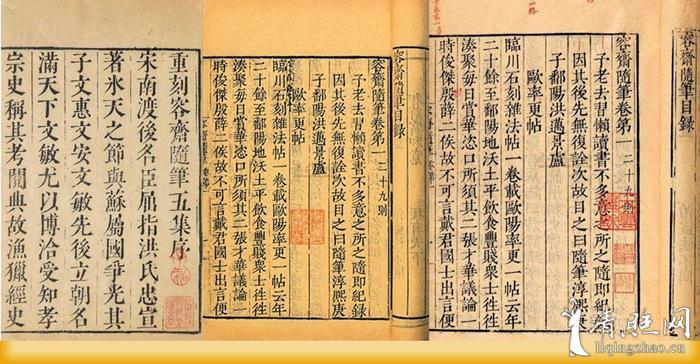 重刻容齋隨筆五集序
宋南渡後名臣屈指洪氏忠宣
著氷天之節與蘇屬國爭光其
子文惠文安文敏先後立朝名
滿天下文敏尤以博洽受知孝
宗史稱其考閱典故漁獵經史
容齋隨筆目録
容齋隨筆卷第一 二十九則
予老去習懶讀書不多意之所之隨即紀録
因其後先無復詮次故目之曰隨筆淳熙庚
子鄱陽洪邁景盧
歐率更帖
臨川石刻雜法帖一卷載歐陽率更一帖云年
二十餘至鄱陽地沃土平飲食豐賤衆士往往
湊聚每日賞華恣口所須其二張才華議論一
時俊傑殷薛二侯故不可言戴君國士出言便
容齋隨筆目録
容齋隨筆卷第一 二十九則
予老去習懶讀書不多意之所之隨即紀録
因其後先無復詮次故目之曰隨筆淳熙庚
子鄱陽洪邁景盧
歐率更帖
臨川石刻雜法帖一卷載歐陽率更一帖云年
二十餘至鄱陽地沃土平飲食豐賤衆士往往
湊聚每日賞華恣口所須其二張才華議論一
時俊傑殷薛二侯故不可言戴君國士出言便
liqingzhao.cn